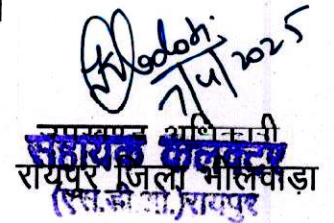 7/4/2025
उपखण्ड अधिकारी
सहायक कलक्टर
रायपुर जिला भीलवाड़ा
(एस.डी.ओ.) रायपुर